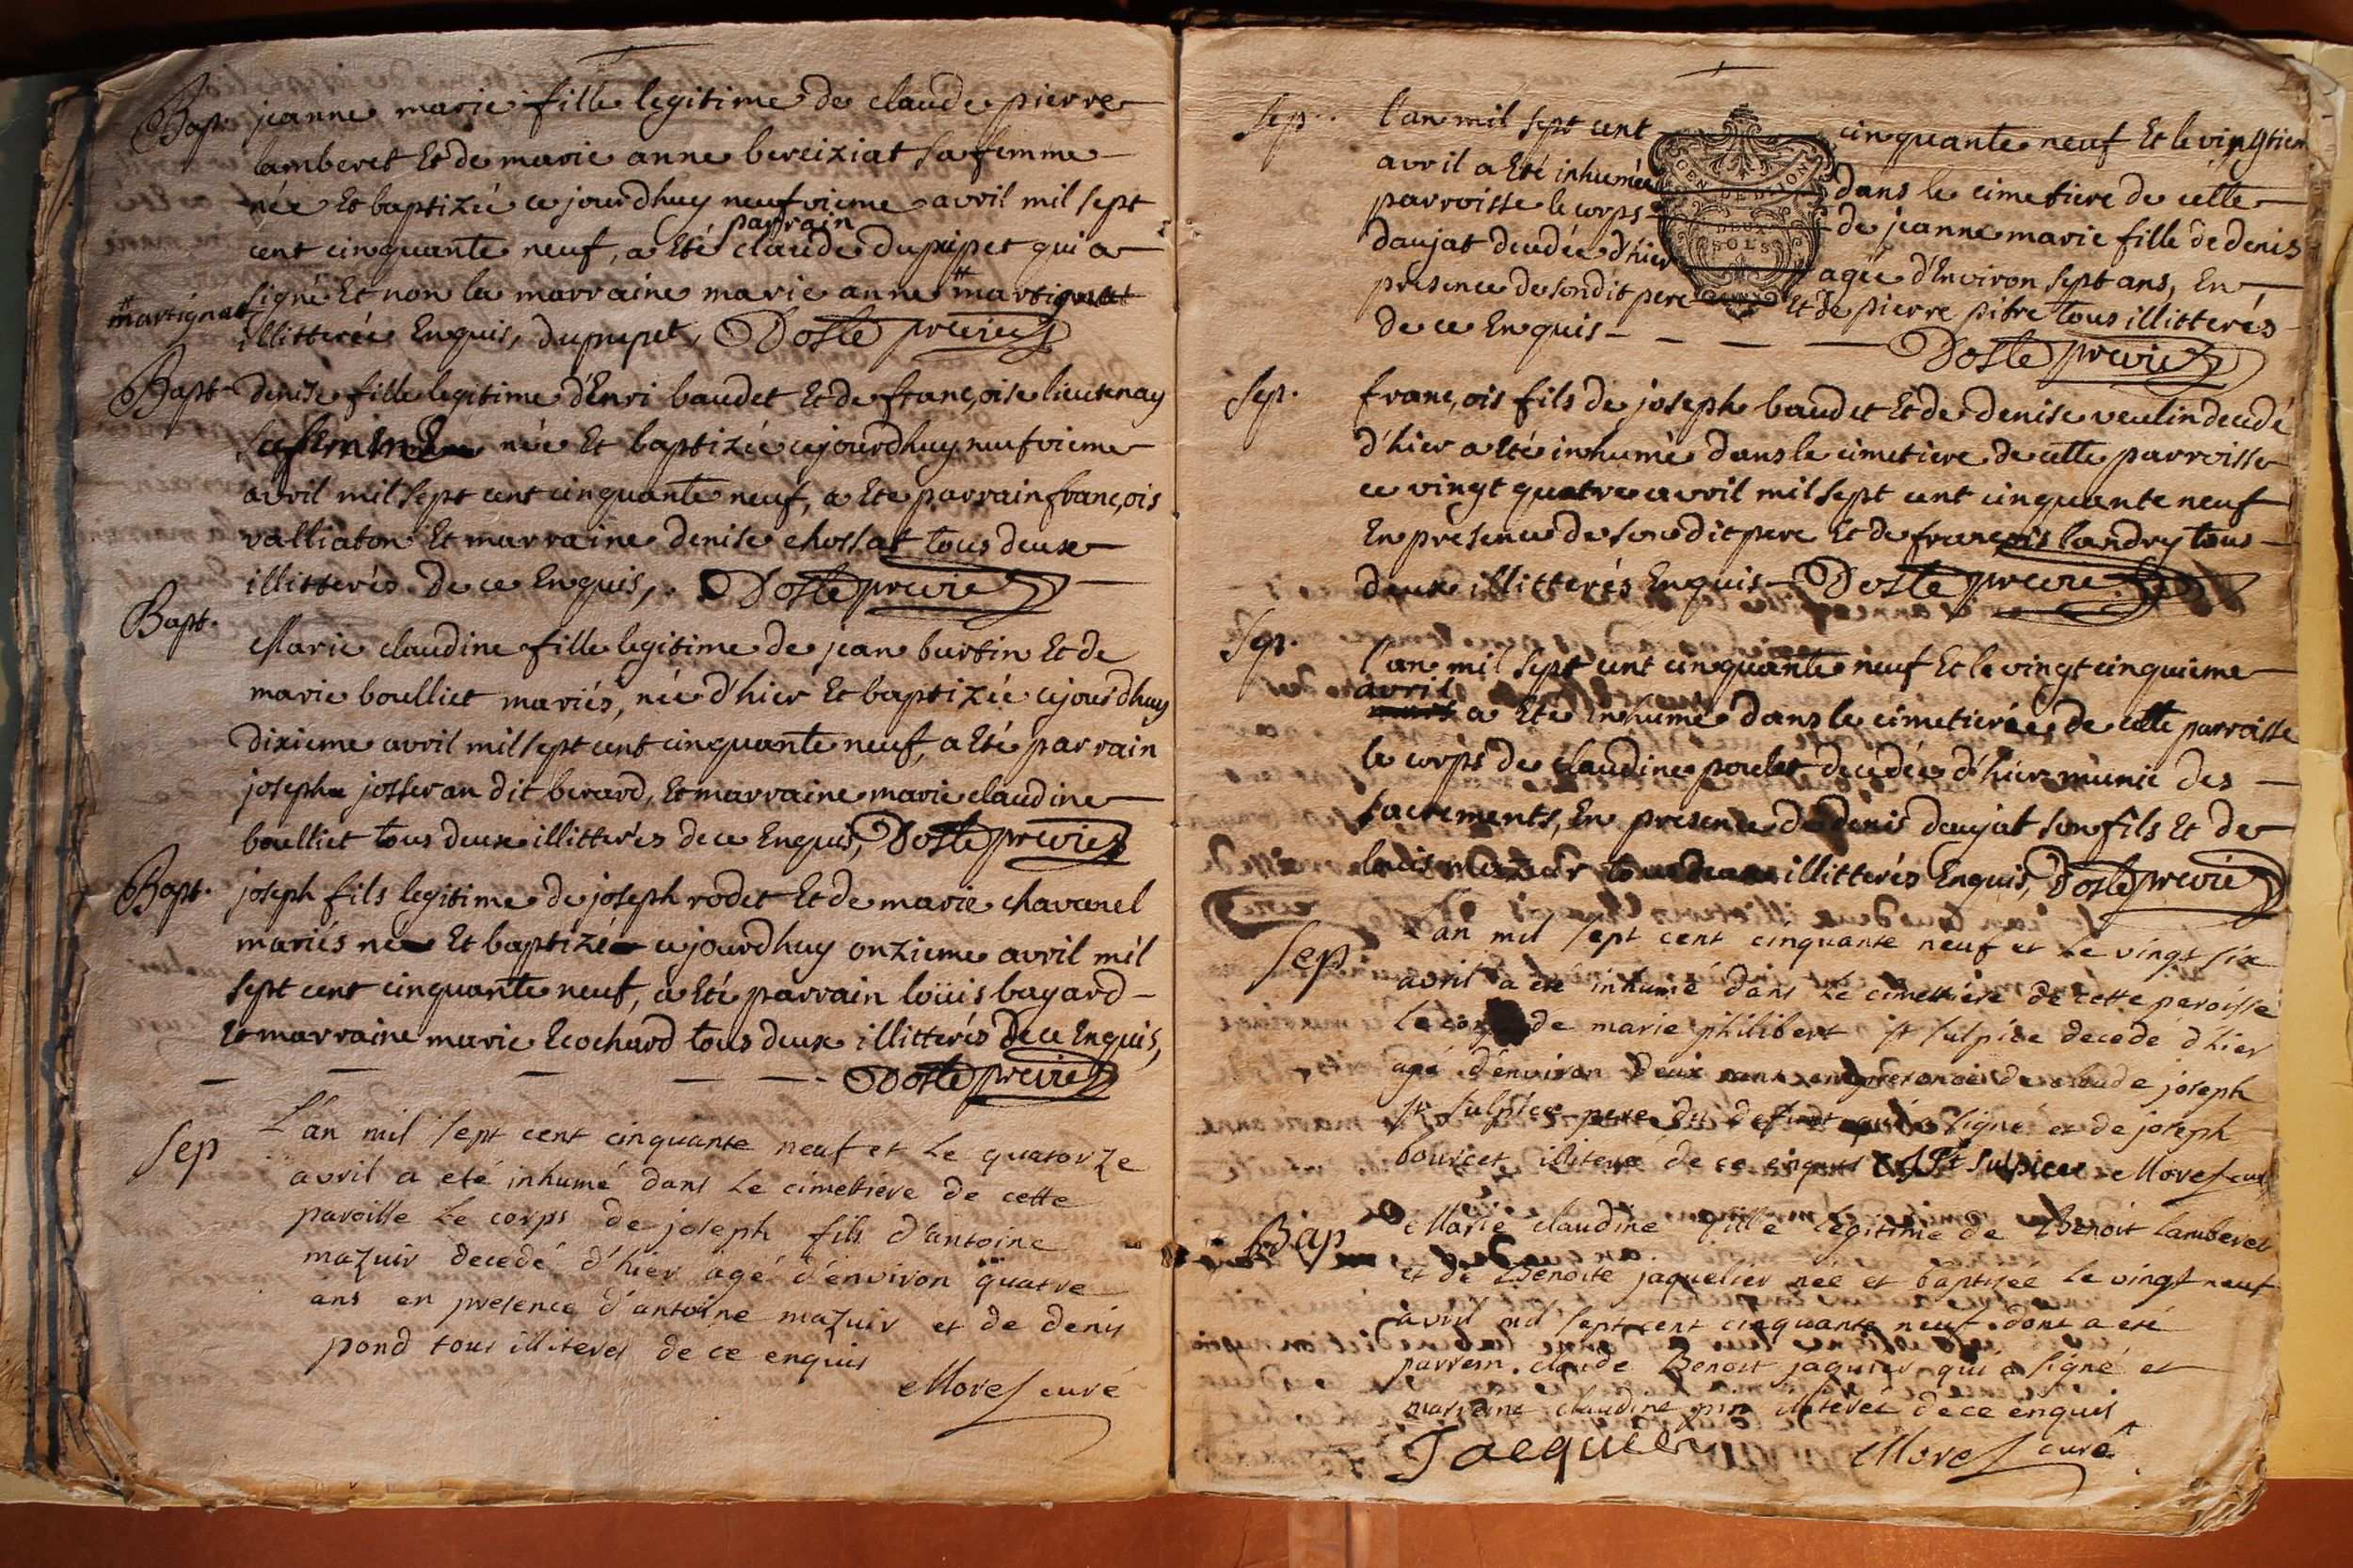 Bapt. jeanne marie fille legitime de claude pierre
lamberet Et de marie anne bereiziat sa femme
née Et baptizée cejourdhuy neufvieme avril mil sept
parrain
cent cinquante neuf, a Eté claude dupupet qui a
signé Et non la marraine marie anne martignat
martignat
illitterée Enquis, dupupet,
Bapt. denise fille legitime d'Enri baudet Et de françoise lieutenay
sa femme née Et baptizée cejourdhuy neufvieme
avril mil sept cent cinquante neuf, a Eté parrain françois
valliaton Et marraine denise chossat tous deux
illitterés de ce Enquis,
Bapt.
Marie claudine fille legitime de jean burtin Et de
marie boulliet mariés, née d'hier Et baptizée cejourdhuy
dixieme avril mil sept cent cinquante neuf, a Eté parrain
joseph josseran dit berard, Et marraine marie claudine
boulliet tous deux illitterés de ce Enquis,
Bapt. joseph fils legitime de joseph rodet Et de marie chavanel
mariés né Et baptizé cejourdhuy onzieme avril mil
sept cent cinquante neuf, a Eté parrain loüis bagard
Et marraine marie Ecochard tous deux illitterés de ce Enquis,
Sep L'an mil sept cent cinquante neuf et le quatorze
avril a eté inhumé dans le cimettiere de cette
paroisse le corps de joseph fils d'antoine
mazuir decedé d'hier agé d'environ quatre
ans en presence d'antoine mazuir et de denis
pond tous illiterés de ce enquis
Morel curé
Sep. l'an mil sept cent cinquante neuf Et le vingtiem
avril a Eté inhumée dans le cimetiere de cette
parroisse le corps de jeanne marie fille de denis
daujat decedée d'hier agée d'Environ sept ans, En
presence de sondit pere Et de pierre pitre tous illitterés
de ce Enquis
GEN. DE DIJON
DEUX
SOLS
Sep. françois fils de joseph baudet Et de denise veulin decedé
d'hier a Eté inhumé dans le cimetiere de cette parroisse
ce vingt quatre avril mil sept cent cinquante neuf
En presence de sondit pere Et de françois landry tous
deux illitterés Enquis
Sep. l'an mil sept cent cinquante neuf Et le vingt cinquieme
avril
a Eté inhumé dans le cimetiere de cette parroisse
le corps de claudine poulet decedée d'hier munie des
sacrements, En presence de denis daujat son fils Et de
louis mazuir tous deux illitterés Enquis,
Sep L'an mil sept cent cinquante neuf et le vingt six
avril a eté inhumé dans le cimettiere de cette paroisse
le corps de marie philibert st sulpice decedé d'hier
agé d'environ deux ans en presence de claude joseph
st sulpice pere du defunt qui a signé et de joseph
bourcet illiteré de ce enquis St Sulpice Morel curé
Bap Marie claudine fille legitime de Benoit lamberet
et de Benoite jaquelier née et baptisée le vingt neuf
avril mil sept cent cinquante neuf dont a eté
parrein claude Benoit jaquier qui a signé et
marreine claudine pin illiterée de ce enquis
Jacquier Morel curé